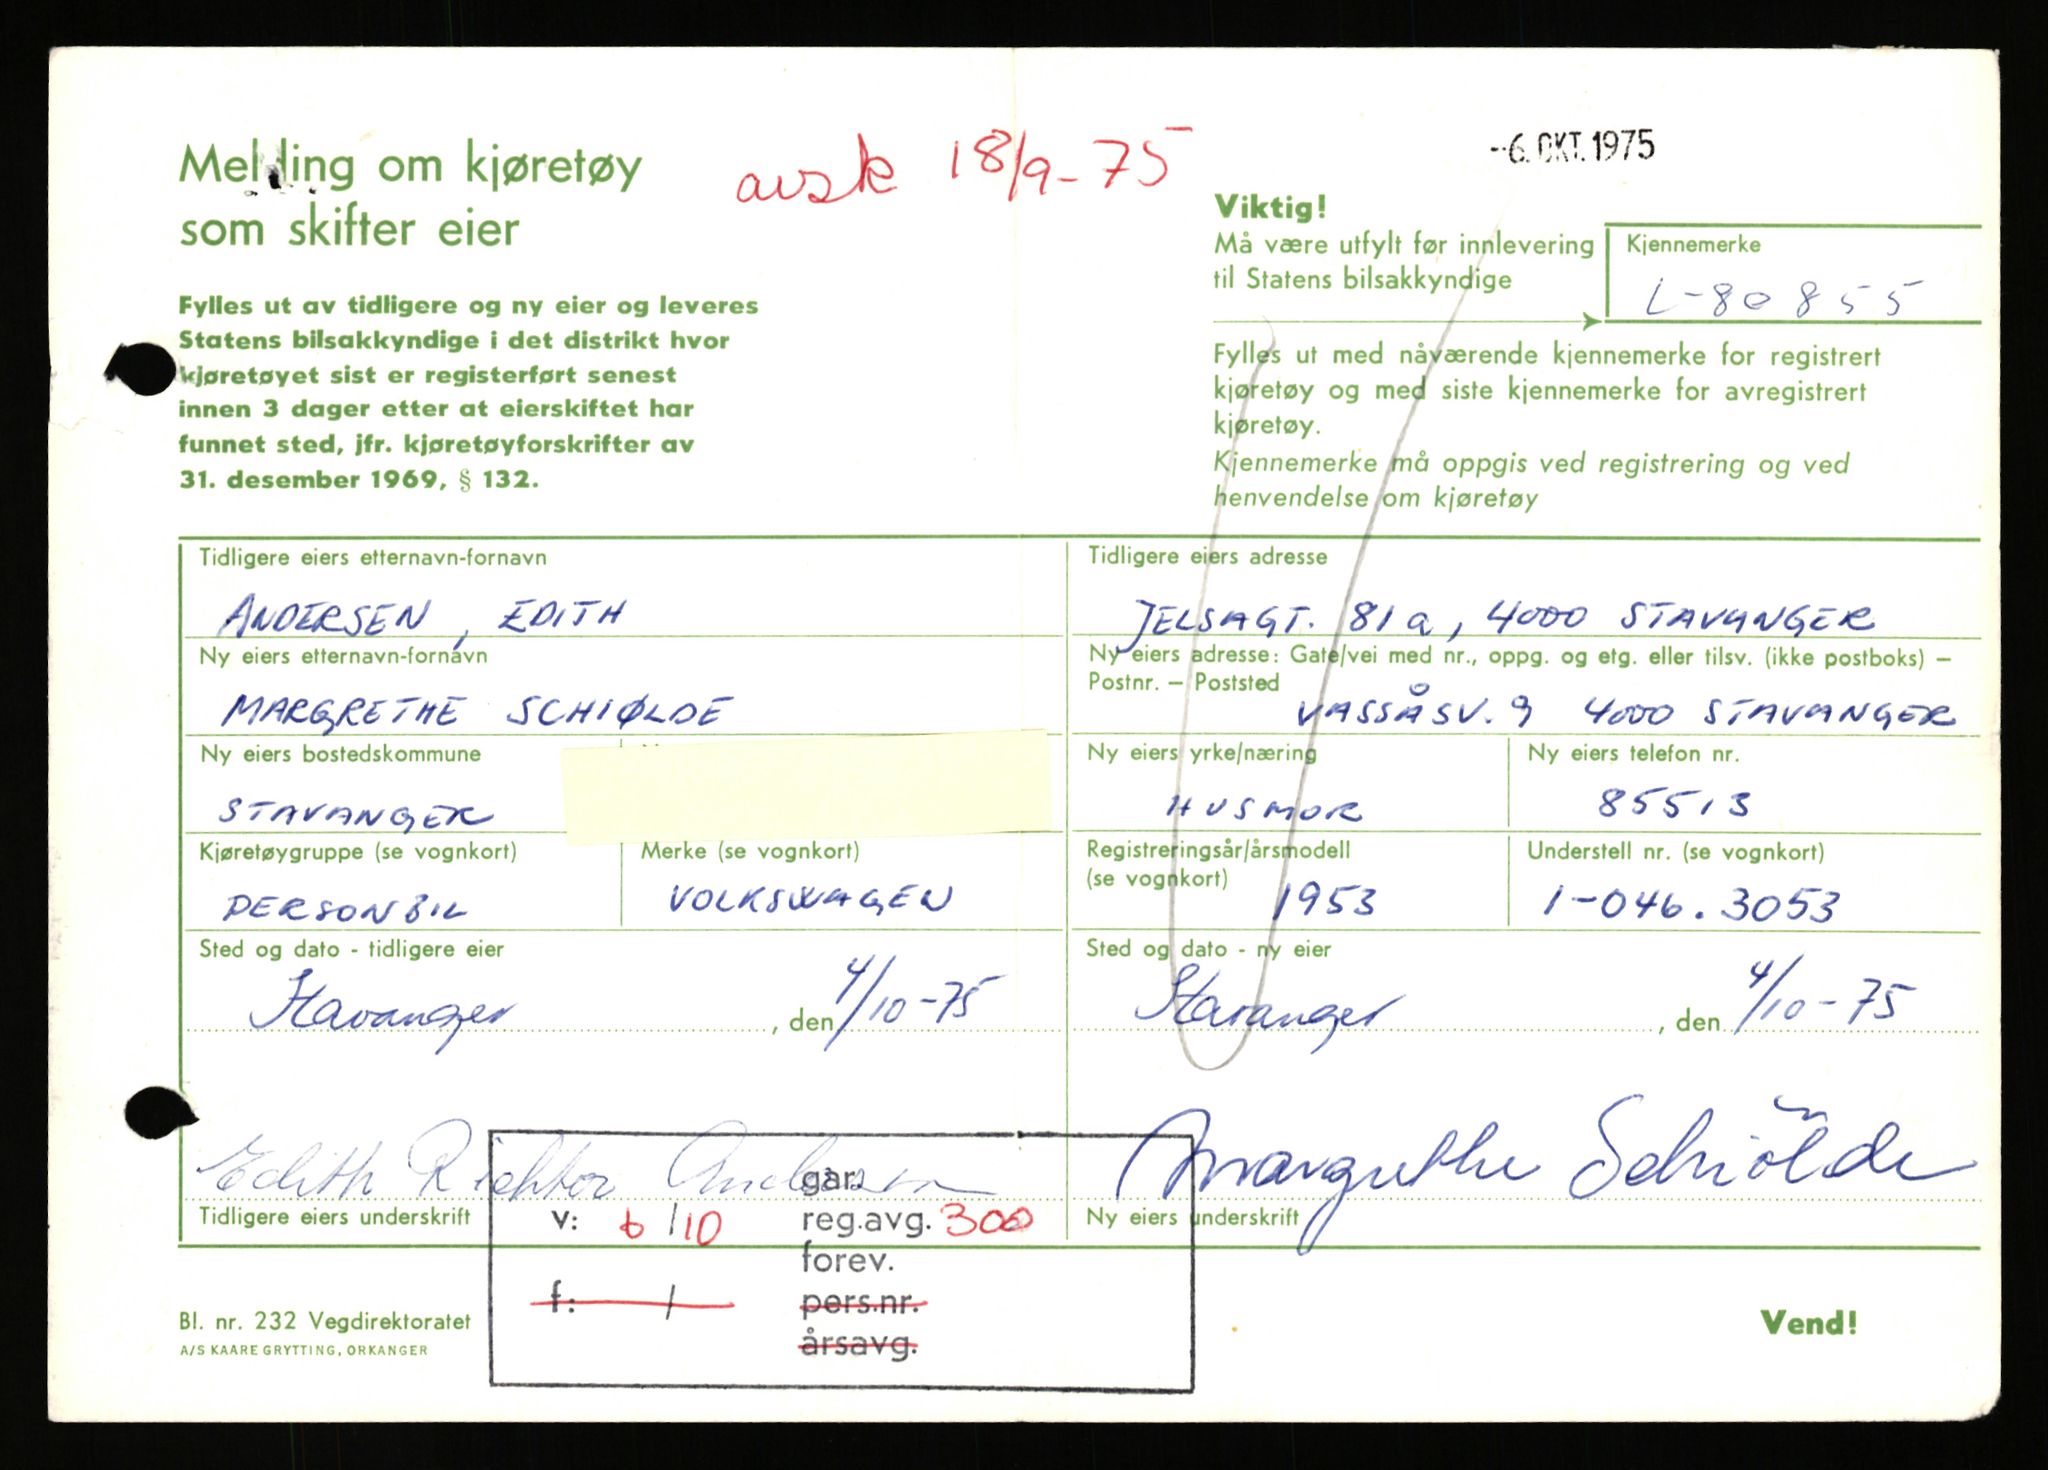 Melding om kjøretøy
som skifter eier
avsk 18/9-75
-6. OKT. 1975
Fylles ut av tidligere og ny eier og leveres
Statens bilsakkyndige i det distrikt hvor
kjøretøyet sist er registerført senest
innen 3 dager etter at eierskiftet har
funnet sted, jfr. kjøretøyforskrifter av
31. desember 1969, § 132.
Viktig!
Må være utfylt før innlevering
til Statens bilsakkyndige
Kjennemerke
L-80855
Fylles ut med nåværende kjennemerke for registrert
kjøretøy og med siste kjennemerke for avregistrert
kjøretøy.
Kjennemerke må oppgis ved registrering og ved
henvendelse om kjøretøy
Tidligere eiers etternavn-fornavn
ANDERSEN, EDITH
Tidligere eiers adresse
JELSAGT. 81a, 4000 STAVANGER
Ny eiers etternavn-fornavn
MARGRETHE SCHIØLDE
Ny eiers adresse: Gate/vei med nr., oppg. og etg. eller tilsv. (ikke postboks) –
Postnr. – Poststed
VASSÅSV. 9 4000 STAVANGER
Ny eiers bostedskommune
STAVANGER
Ny eiers yrke/næring
HUSMOR
Ny eiers telefon nr.
85513
Kjøretøygruppe (se vognkort)
PERSONBIL
Merke (se vognkort)
VOLKSWAGEN
Registreringsår/årsmodell
(se vognkort)
1953
Understell nr. (se vognkort)
1-046.3053
Sted og dato - tidligere eier
Stavanger, den 4/10-75
Sted og dato - ny eier
Stavanger, den 4/10-75
Edith Richter Andersen
Tidligere eiers underskrift
Margrethe Schiölde
Ny eiers underskrift
gar.
v: 6/10 reg.avg. 300
forev.
f: / pers.nr.
årsavg.
Bl. nr. 232 Vegdirektoratet
A/S KAARE GRYTTING, ORKANGER
Vend!